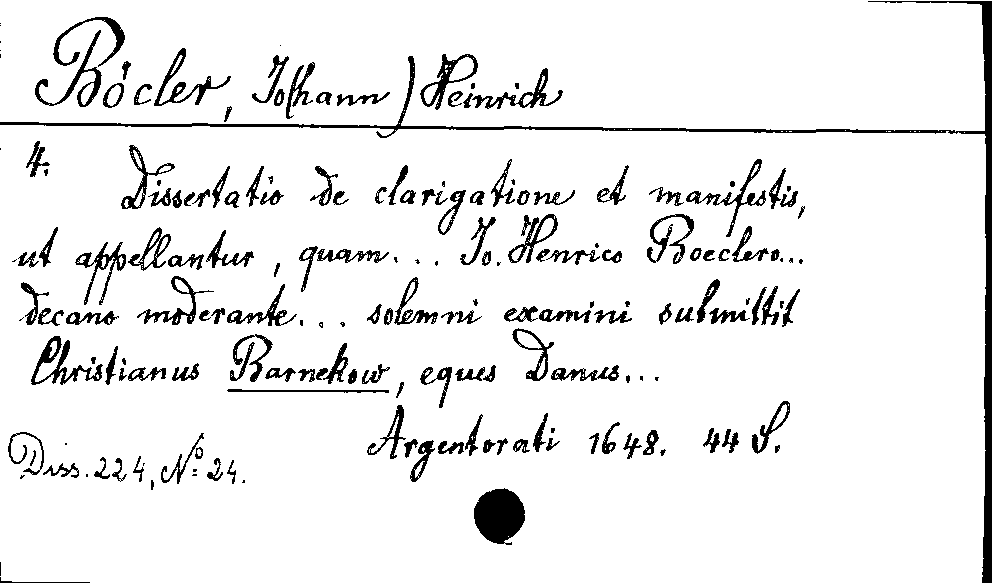 Böcler, Jo(hann) Heinrich
4.
Dissertatio de clarigatione et manifestis,
ut appellantur, quam... Jo. Henrico Boeclero...
decano moderante... solemni examini submittit
Christianus Barnekow, eques Danus...
Argentorati 1648. 44 S.
Diss. 224, No 24.